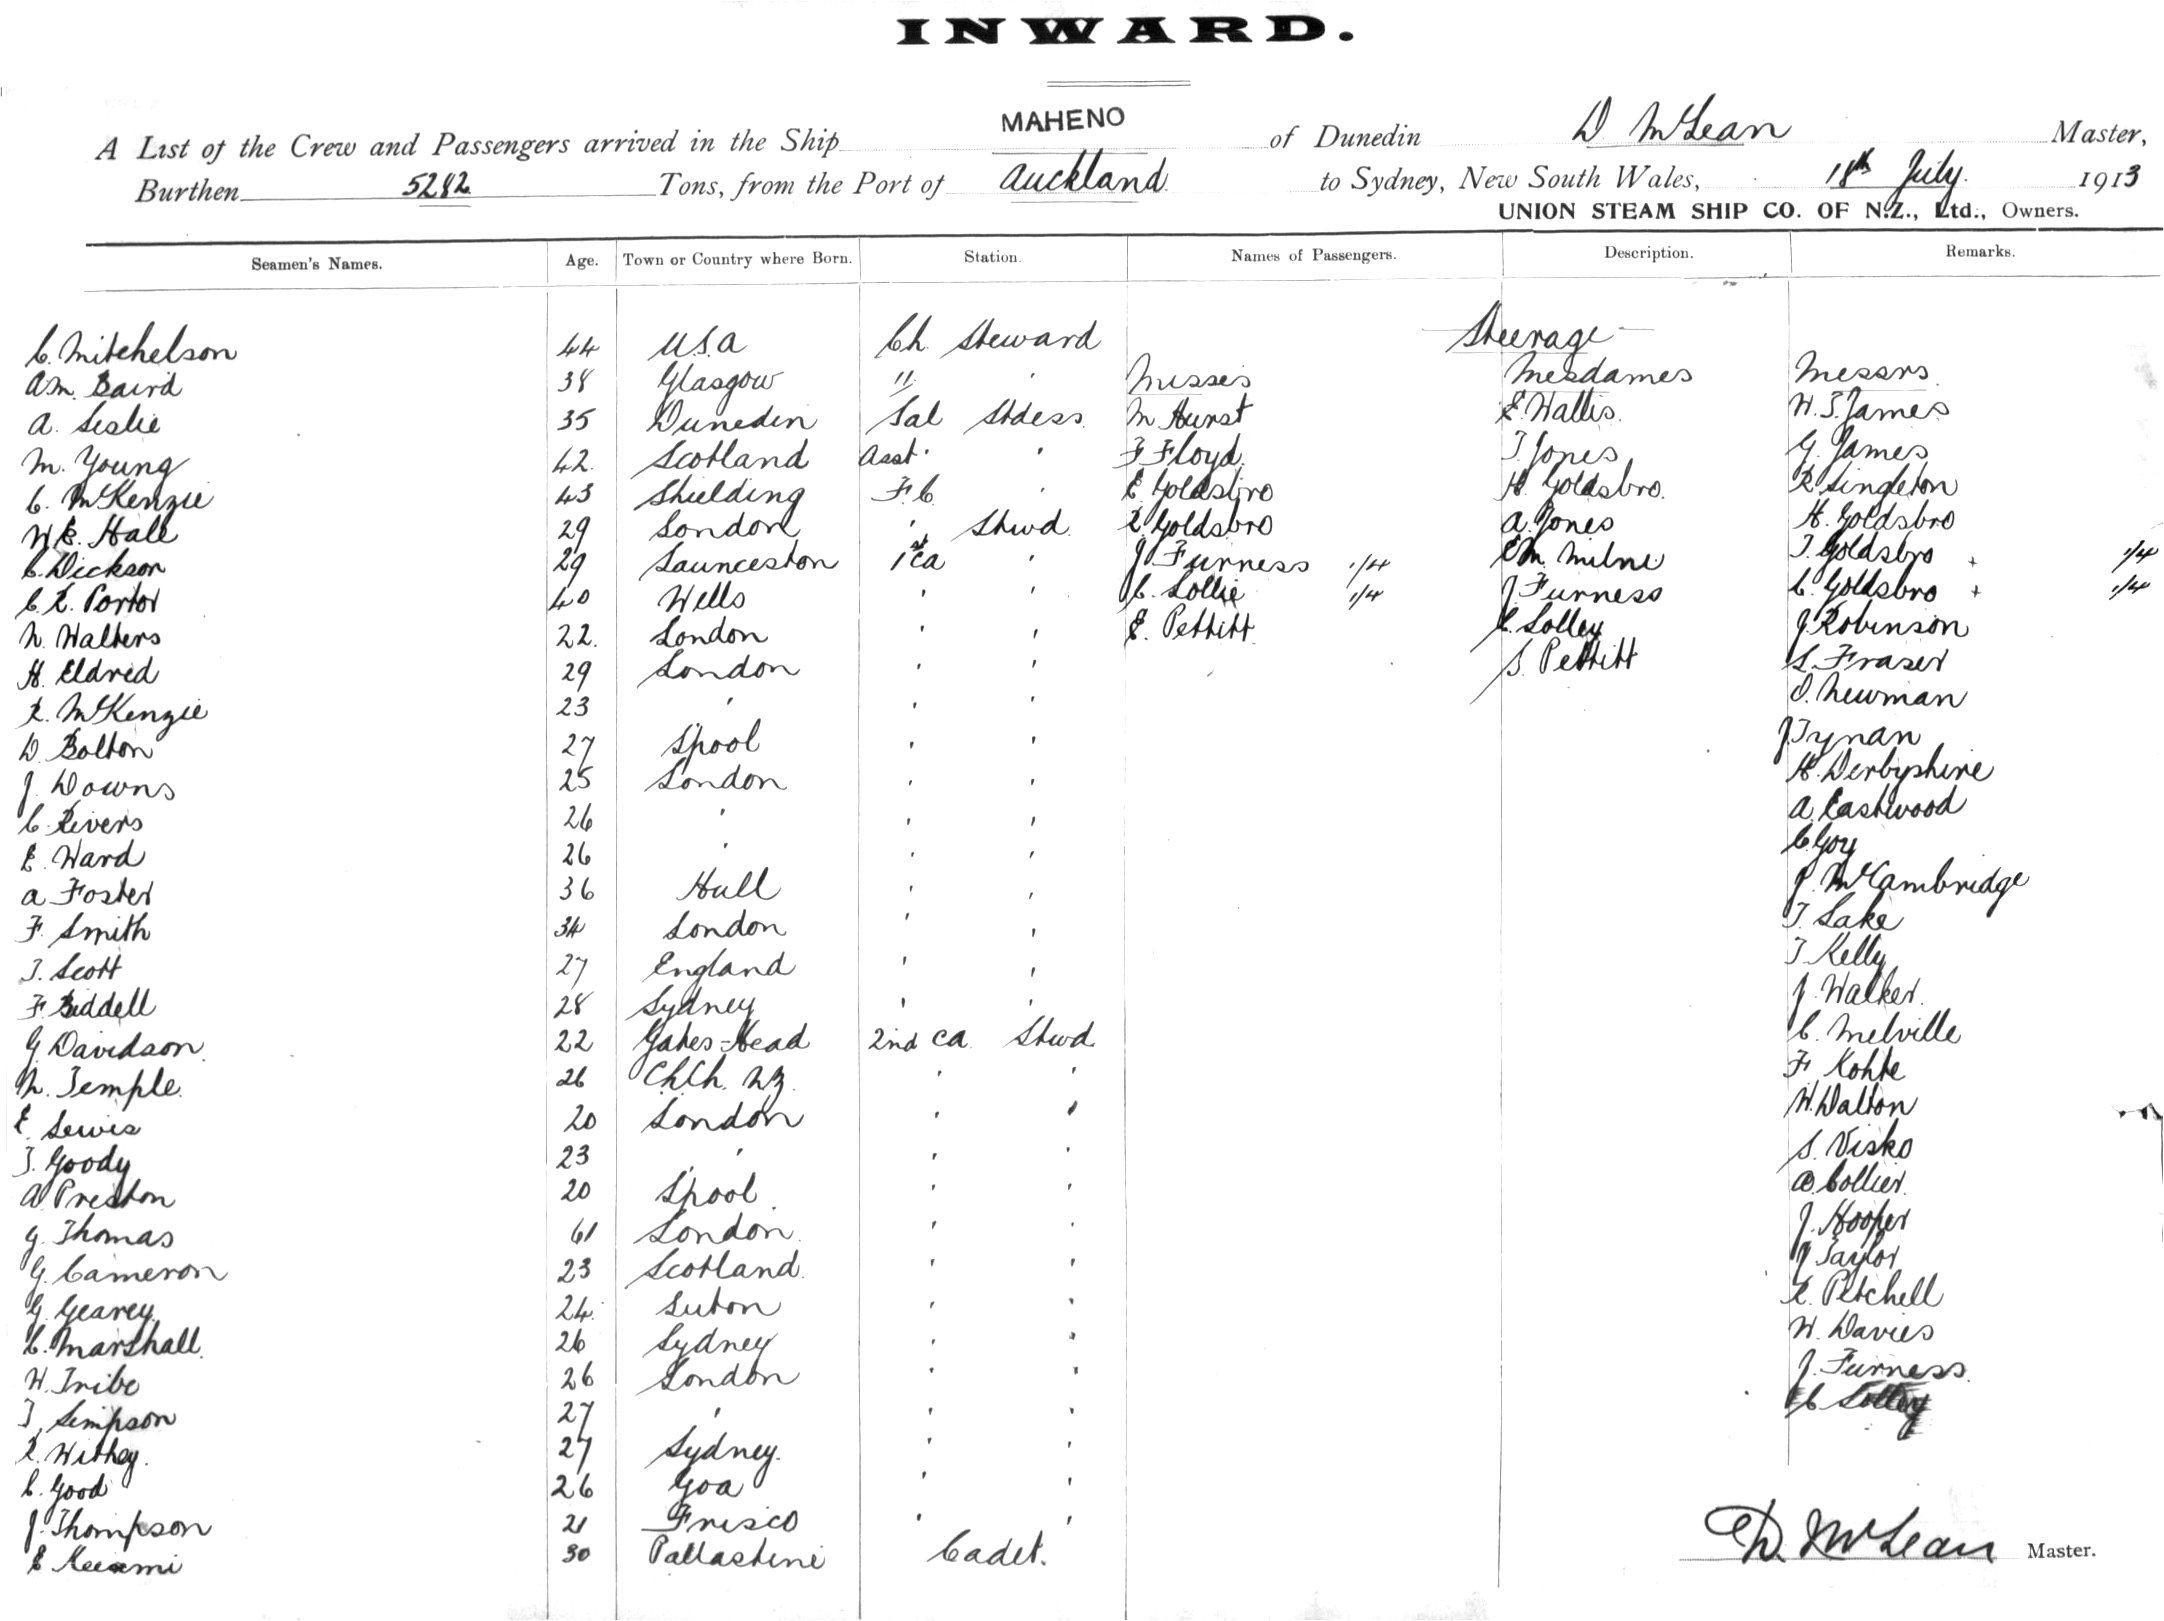 INWARD.
A List of the Crew and Passengers arrived in the Ship MAHENO of Dunedin D McLean Master,
Burthen 5282 Tons, from the Port of Auckland to Sydney, New South Wales, 18th July 1913
UNION STEAM SHIP CO. OF N.Z., Ltd., Owners.
Seamen's Names. Age. Town or Country where Born. Station. Names of Passengers. Description. Remarks.
Steerage
C. Mitchelson 44 U.S.A Ch Steward
A.M. Baird 38 Glasgow " ' Misses Mesdames Messrs
A. Leslie 35 Dunedin Sal Stdess M Hurst E. Wallis W. J. James
M. Young 42 Scotland Asst ' ' F Floyd J Jones G. James
C. McKenzie 43 Shielding F.C ' E Goldsbro H. Goldsbro R Singleton
W.E. Hall 29 London ' Stwd R Goldsbro A. Jones H. Goldsbro
C. Dickson 29 Launceston 1st Ca ' J Furness 1/4 E M. Milne T. Goldsbro + 1/4
C. R. Porter 40 Wells ' ' C. Sollie 1/4 J Furness C. Goldsbro + 1/4
N. Walters 22 London ' ' E. Pettitt C. Solley J. Robinson
H. Eldred 29 London ' ' S. Pettitt L. Fraser
R. McKenzie 23 ' ' ' D. Newman
D. Bolton 27 Lpool ' ' J Tynan
J. Downs 25 London ' ' H. Derbyshire
C. Rivers 26 ' ' ' A. Eastwood
E. Ward 26 ' ' ' C. Goy
A Foster 36 Hull ' ' J. McCambridge
F. Smith 34 London ' ' T. Lake
T. Scott 27 England ' ' T Kelly
F. Biddell 28 Sydney ' ' J. Walker
G. Davidson 22 Gates-Head 2nd Ca Stwd C. Melville
N. Temple 26 ChCh. NZ ' ' F Kohte
E. Lewis 20 London ' ' W. Dalton
T. Goody 23 ' ' ' S. Visko
A Preston 20 Lpool ' ' A. Collier
G. Thomas 61 London ' ' J. Hooper
G. Cameron 23 Scotland ' ' J Taylor
G. Gearey 24 Luton ' ' R. Petchell
C. Marshall 26 Sydney ' ' W. Davies
W. Tribe 26 London ' ' J. Furness
T. Simpson 27 ' ' ' C Solley
R. Withey 27 Sydney ' '
C. Good 26 Goa ' '
J. Thompson 21 Frisco ' '
E 30 Pallastine Cadet.
D. McLean Master.